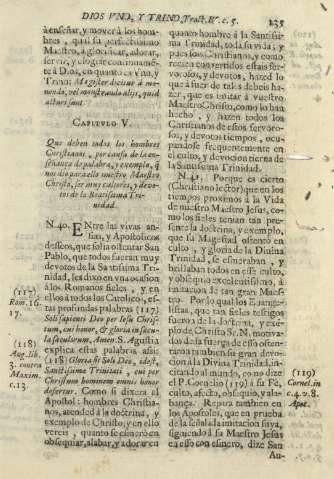 DIOS VNO, Y TRINO, Tract. IV. c. 5.
235
à enseñar, y mover à los hom-
bres, quál su perfectissimo
Maestro, à glorificar, adorar,
servir, y
tè à Dios, en quanto es Vno, y
Trino: Magister docuit à mo-
nendo, vel monstrando aliis, quid
acturi sunt
CAPITULO V.
Que deben todos los hombres
Christianos, por causa de la en-
señança de palabra, y exemplo, q̃
nos dio para ello nuestro Maestro
Christo, ser muy cultores, y devo-
tos de la Beatissima Tri-
nidad.
N. 40. ENtre las vivas an-
sias, y Apostolicos
deseos, que solia ostentar San
Pablo, que todos fueran muy
devotos de la Santissima Tri-
nidad, les dixo en vna ocasion
à los Romanos fieles, y en
ellos à todos los Catolicos, es-
tas profundas palabras (117)
Soli sapienti Deo per Iesu Chris-
tum, cui honor, & gloria in sæcu-
la sæculorum, Amen. S. Agustin
explica estas palabras assi:
(118) Gloria sit Soli Deo, idest,
Sanctissimæ Trinitati, cui per
Christum hominem omnis honor
defertur. Como si dixera el
Apostol: hombres Christia-
nos, atended à la doctrina, y
exemplo de Christo, y en ello
vereis, quanto se esmerò en
obsequiar, alabar, y adorar en
(117)
Rom. 16.
17.
(118)
Aug. lib.
3. contra
Maxim.
c. 13.
quanto hombre à la Santissi-
ma Trinidad, toda su vida; y
pues sois Christianos, y como
recien convertidos estais fer-
vorosos, y devotos, hazed lo
que à fuer de tales debeis ha-
zer, que es imitar à vuestro
Maestro Christo, como lo han
hecho, y hazen todos los
Christianos de estos fervoro-
sos, y devotos tiempos, ocu-
pandose frequentemente en
el culto, y devocion tierna de
la Santissima Trinidad.
N. 41. Porque es cierto
(Christiano lector) que en los
tiempos proximos à la Vida
de nuestro Maestro Jesus, co-
mo los fieles tenian tan pre-
sente la doctrina, y exemplo,
que su Magestad ostentò en
culto, y gloria de la Divina
Trinidad, se esmeraban, y
brillaban todos en esse culto,
y obsequio excelentissimo, à
imitacion de tan gran Maes-
tro. Por lo qual los Evange-
listas, que tan fieles testigos
fueron de la doctrina, y exe-
plo de Christo Sr. N. motiva-
dos de la fuerça de esso osten-
taron tambien su gran devo-
cion à la Divina Trinidad, in-
citando al mundo, como dize
el P. Cornelio (119) à su Fè,
culto, afecto, obsequio, y ala-
bança. Repara tambien en
los Apostoles, que en prueba
de la señalada imitacion suya,
siguiendo à su Maestro Jesus
en esso con esmero, dize San
Au-
(119)
Cornel. in
c. 4. v. 8.
Apoc.